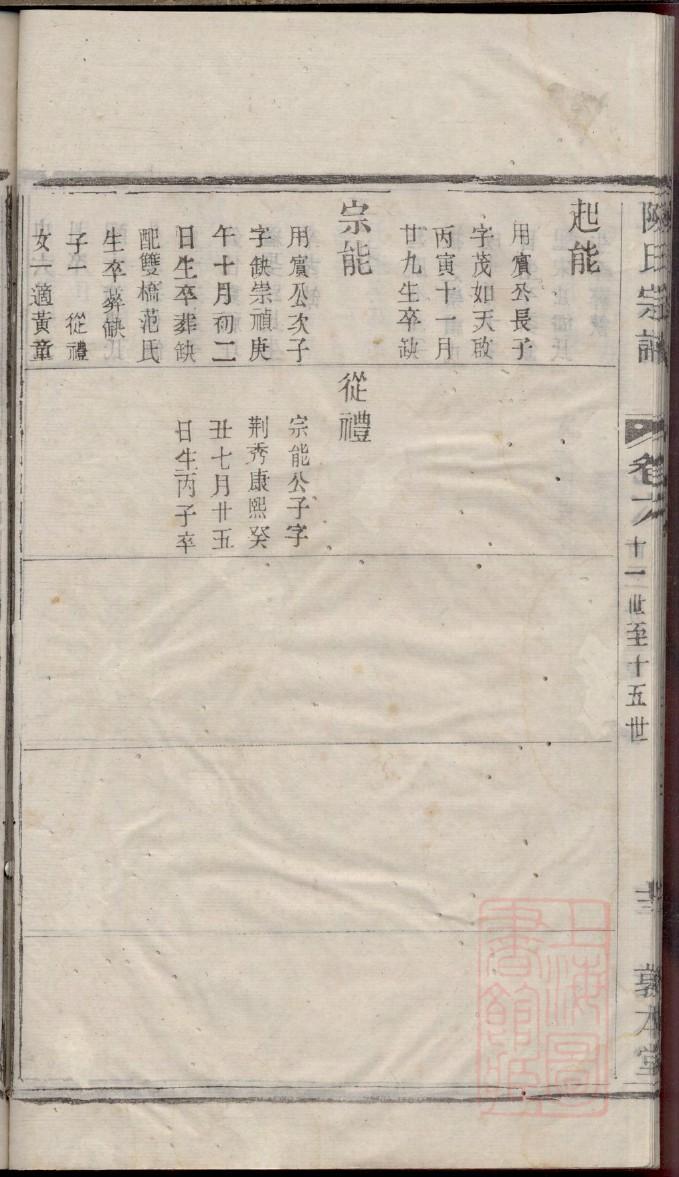 陳氏宗譜
卷六
十一世至十五世
敦本堂
起能
用賓公長子
字茂如天啟
丙寅十一月
廿九生卒缺
宗能
用賓公次子
字缺崇禎庚
午十月初二
日生卒葬缺
配雙橋范氏
生卒葬缺
子一 從禮
女一適黃童
從禮
宗能公子字
荆秀康熙癸
丑七月廿五
日生丙子卒
上海圖
書館藏